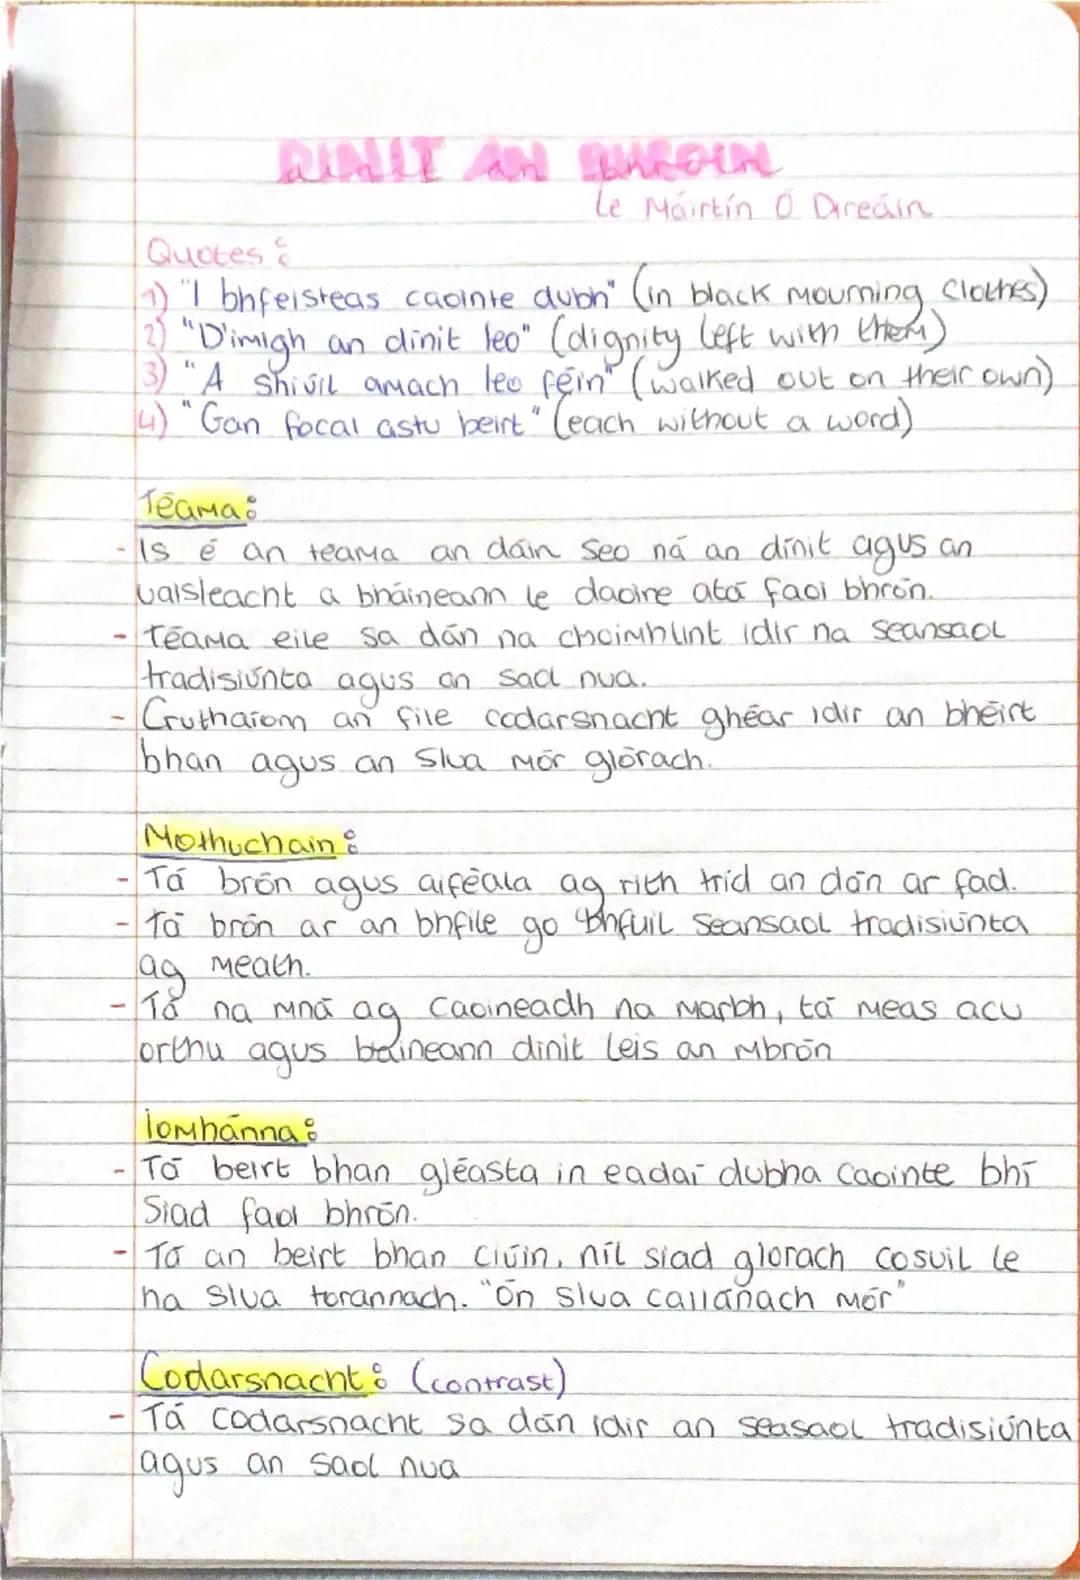 DINIT AN BHRÓIN
le Máirtín Ó Direáin
Quotes:
1) "I bhfeisteas caointe dubh" (in black mourning clothes)
2) "D'imigh an dínit leo" (dignity left with them)
3) "A shiúil amach leo féin" (walked out on their own)
4) "Gan focal astu beirt" (each without a word)
Téama:
- Is é an teama an dáin seo ná an dínit agus an
uaisleacht a bháineann le daoine atá faoi bhrón.
- Téama eile sa dán na choimhlint idir na seansaol
tradisiúnta agus an saol nua.
- Cruthaíonn an file codarsnacht ghéar idir an bheirt
bhan agus an slua mór glórach.
Mothuchain:
- Tá brón agus aiféala ag rith tríd an dán ar fad.
- Tá brón ar an bhfile go bhfuil seansaol tradisiúnta
ag meath.
- Tá na mná ag caoineadh na marbh, tá meas acu
orthu agus baineann dinit leis an mbrón
Íomhánna:
- Tá beirt bhan gléasta in eadaí dubha caointe bhí
siad faoi bhrón.
- Tá an beirt bhan ciúin, níl siad glorach cosuil le
na slua torannach. "Ón slua callánach mór"
Codarsnacht: (contrast)
- Tá codarsnacht sa dán idir an seasaol tradisiúnta
agus an saol nua